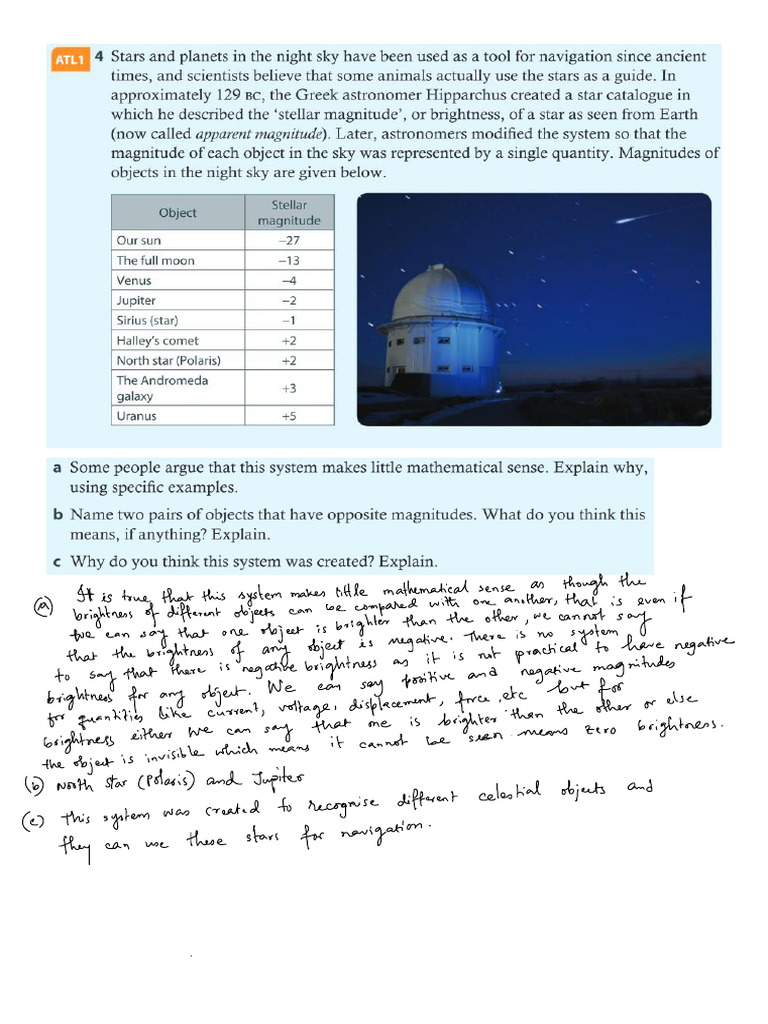 ATL1 4 Stars and planets in the night sky have been used as a tool for navigation since ancient
times, and scientists believe that some animals actually use the stars as a guide. In
approximately 129 BC, the Greek astronomer Hipparchus created a star catalogue in
which he described the 'stellar magnitude', or brightness, of a star as seen from Earth
(now called apparent magnitude). Later, astronomers modified the system so that the
magnitude of each object in the sky was represented by a single quantity. Magnitudes of
objects in the night sky are given below.
Object Stellar magnitude
Our sun −27
The full moon −13
Venus −4
Jupiter −2
Sirius (star) −1
Halley's comet +2
North star (Polaris) +2
The Andromeda galaxy +3
Uranus +5
a Some people argue that this system makes little mathematical sense. Explain why,
using specific examples.
b Name two pairs of objects that have opposite magnitudes. What do you think this
means, if anything? Explain.
c Why do you think this system was created? Explain.
(a) It is true that this system makes little mathematical sense as though the
brightness of different objects can be compared with one another, that is even if
we can say that one object is brighter than the other, we cannot say
that the brightness of any object is negative. There is no system
to say that there is negative brightness as it is not practical to have negative
brightness for any object. We can say positive and negative magnitudes
for quantities like current, voltage, displacement, force, etc but for
brightness either we can say that one is brighter than the other or else
the object is invisible which means it cannot be seen means zero brightness.
(b) North Star (Polaris) and Jupiter
(c) This system was created to recognise different celestial objects and
they can use these stars for navigation.